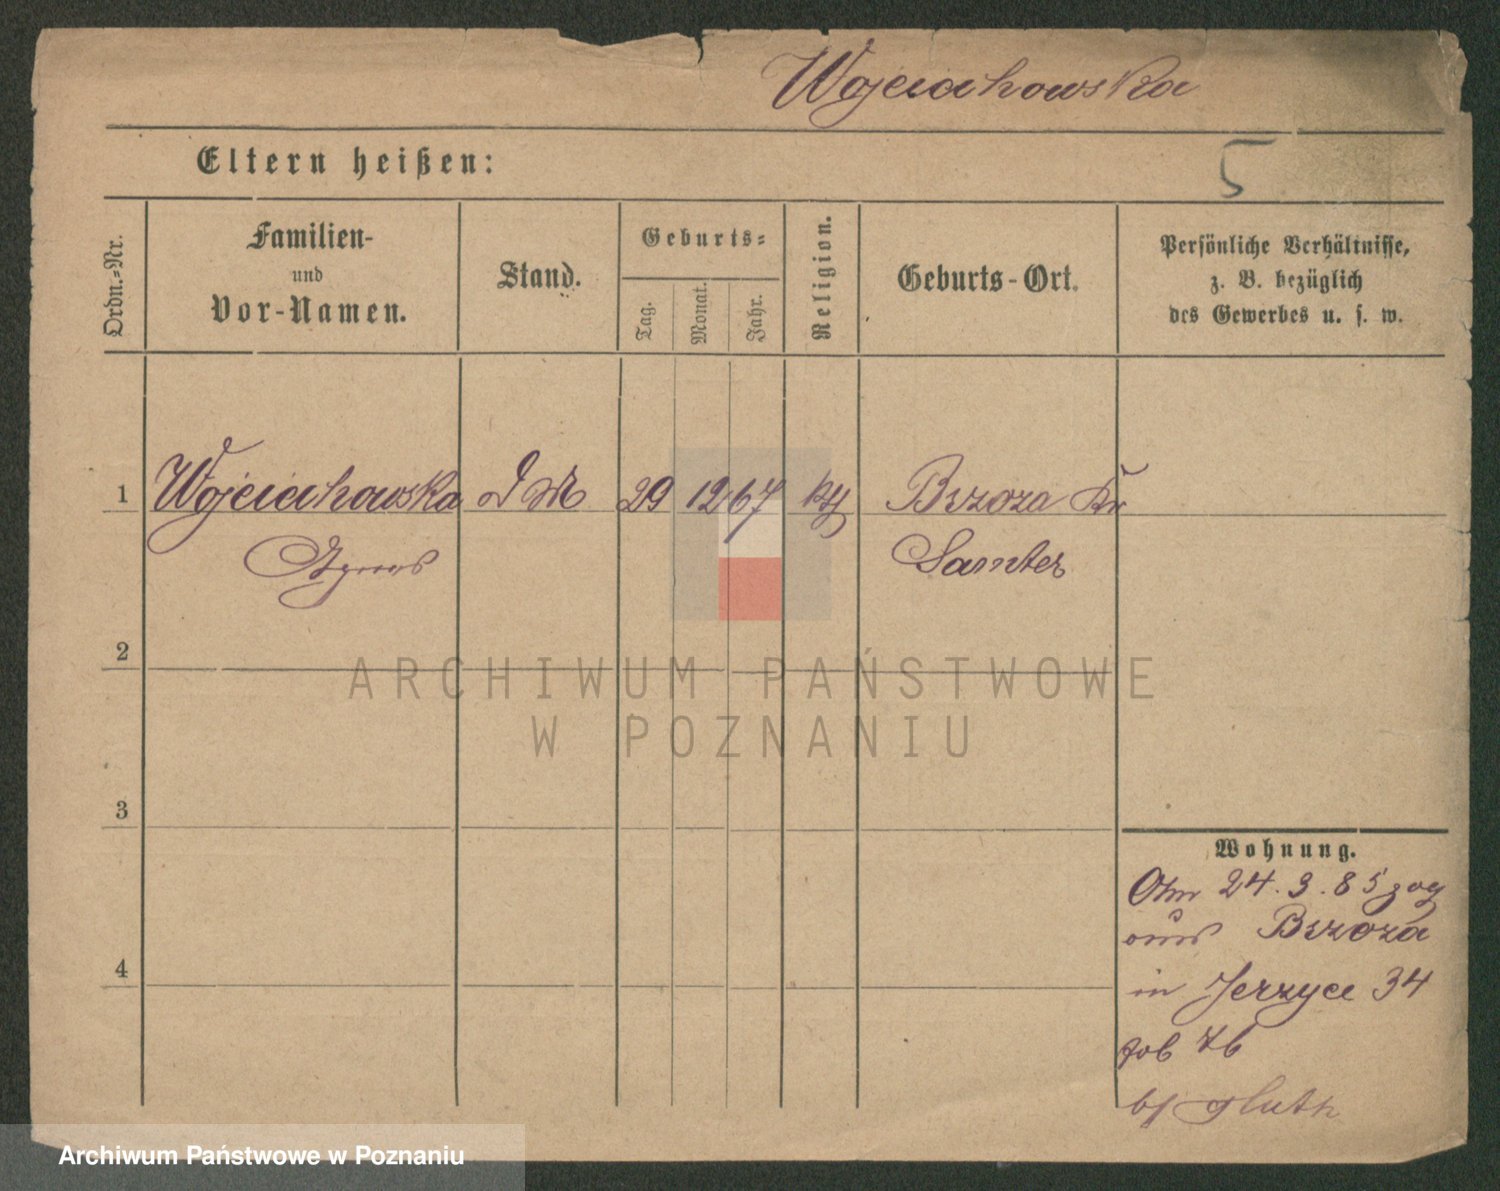 Wojciechowska
Eltern heißen:
5
Ordn.=Nr.
Familien-
und
Vor-Namen.
Stand.
Geburts=
Tag.
Monat.
Jahr.
Religion.
Geburts-Ort.
Persönliche Verhältnisse,
z. B. bezüglich
des Gewerbes u. s. w.
1 Wojciechowska D M 29 12 67 Brzoza Kr
Agnes Samter
2
ARCHIWUM PAŃSTWOWE
W POZNANIU
3
4
Wohnung.
Am 24. 3. 85 zog
aus Brzoza
in Jerzyce 34
Archiwum Państwowe w Poznaniu